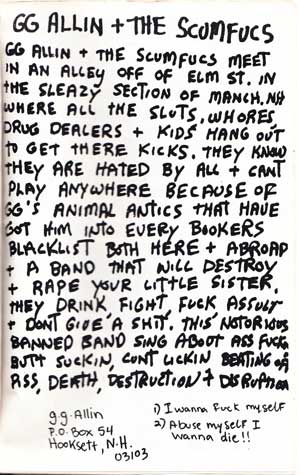 GG ALLIN + THE SCUMFUCS
GG ALLIN + THE SCUMFUCS MEET
IN AN ALLEY OFF OF ELM ST. IN
THE SLEAZY SECTION OF MANCH, NH
WHERE ALL THE SLUTS, WHORES
DRUG DEALERS + KIDS HANG OUT
TO GET THERE KICKS. THEY KNOW
THEY ARE HATED BY ALL + CANT
PLAY ANYWHERE BECAUSE OF
GG'S ANIMAL ANTICS THAT HAVE
GOT HIM INTO EVERY BOOKERS
BLACKLIST BOTH HERE + ABROAD
+ A BAND THAT WILL DESTROY
+ RAPE YOUR LITTLE SISTER.
THEY DRINK, FIGHT, FUCK ASSULT
+ DONT GIVE A SHIT. THIS NOTORIOUS
BANNED BAND SING ABOUT ASS FUCKIN
BUTT SUCKIN, CUNT LICKIN BEATING OFF
ASS, DEATH, DESTRUCTION + DISRUPTION
g.g. Allin
P.O. Box 54
Hooksett, N.H.
03103
1) I wanna Fuck myself
2) Abuse myself I
wanna die!!